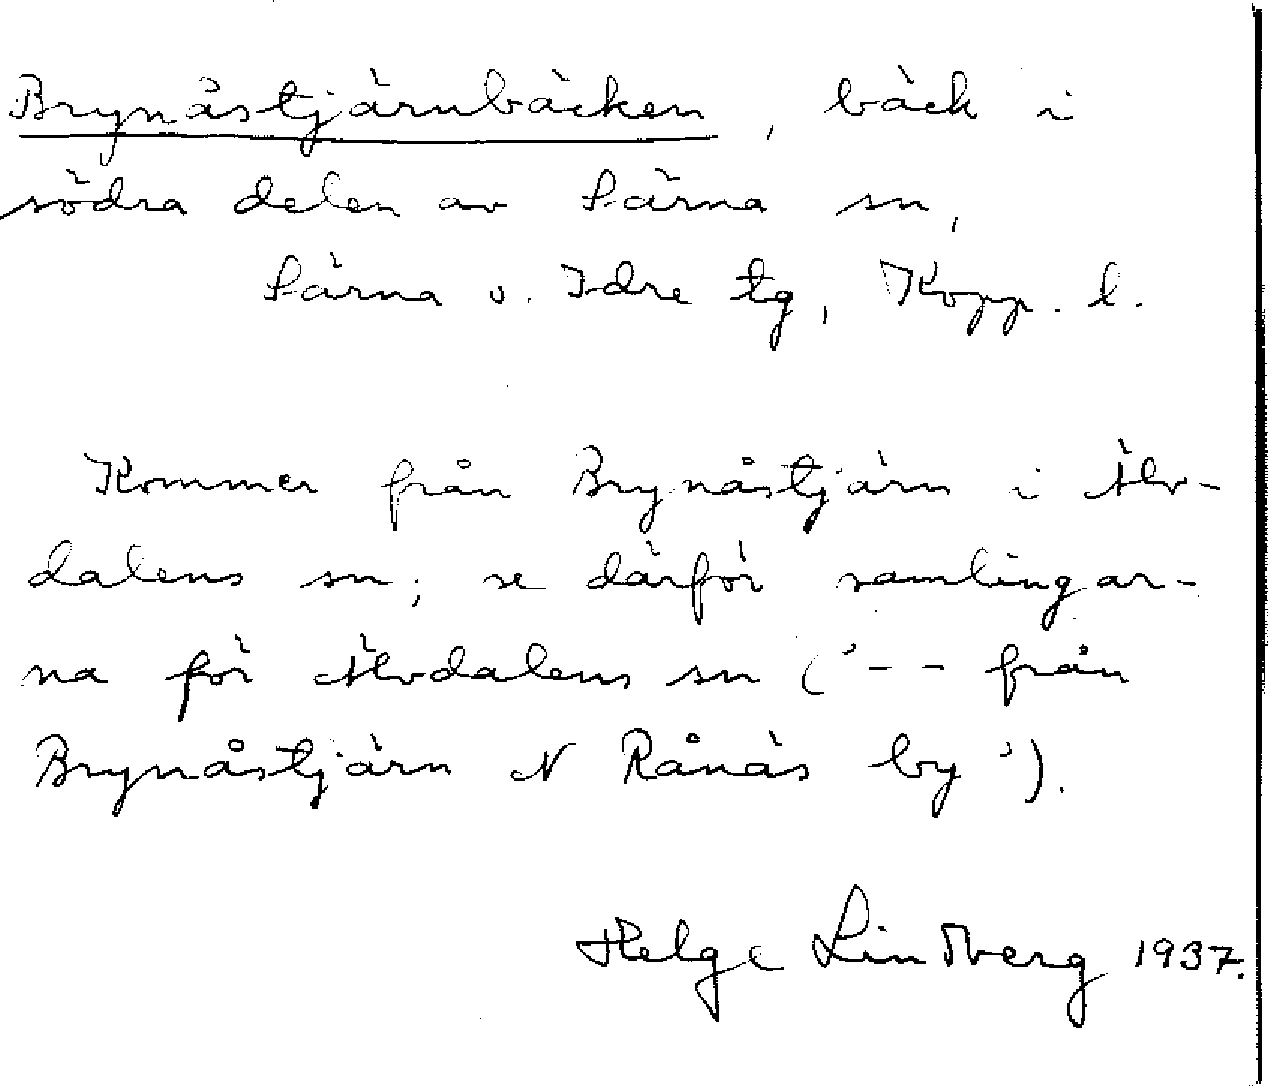 Brynåstjärnbäcken, bäck i
södra delen av Särna sn,
Särna o. Idre tg, Kopp. l.
Kommer från Brynåstjärn i Älv-
dalens sn; se därför samlingar-
na för Älvdalens sn ('-- från
Brynåstjärn N Rånäs by').
Helge Lindberg 1937.